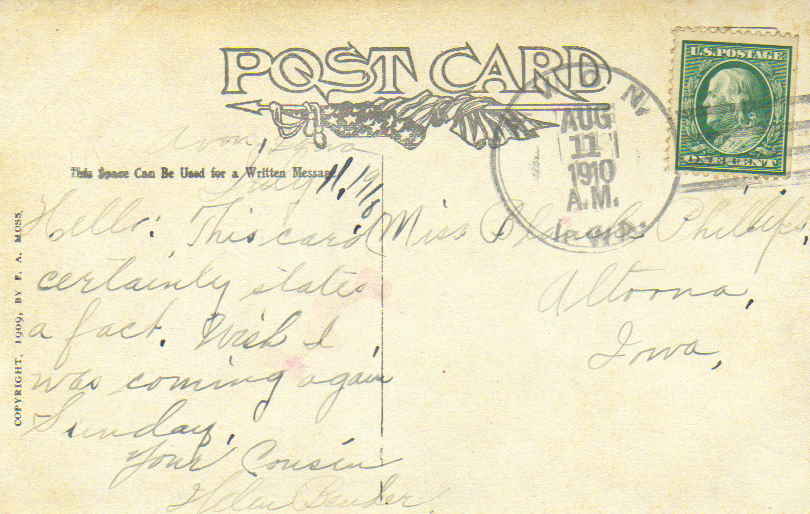 POST CARD
U.S. POSTAGE
ONE CENT
AUG
11
1910
A.M.
This Space Can Be Used for a Written Message
Avon, Iowa
11, 1910
Hello: This card
certainly states
a fact. Wish I
was coming again
Sunday.
Your Cousin
Helen Bender.
Miss Phillips,
Altoona,
Iowa,
COPYRIGHT, 1909, BY F. A. MOSS